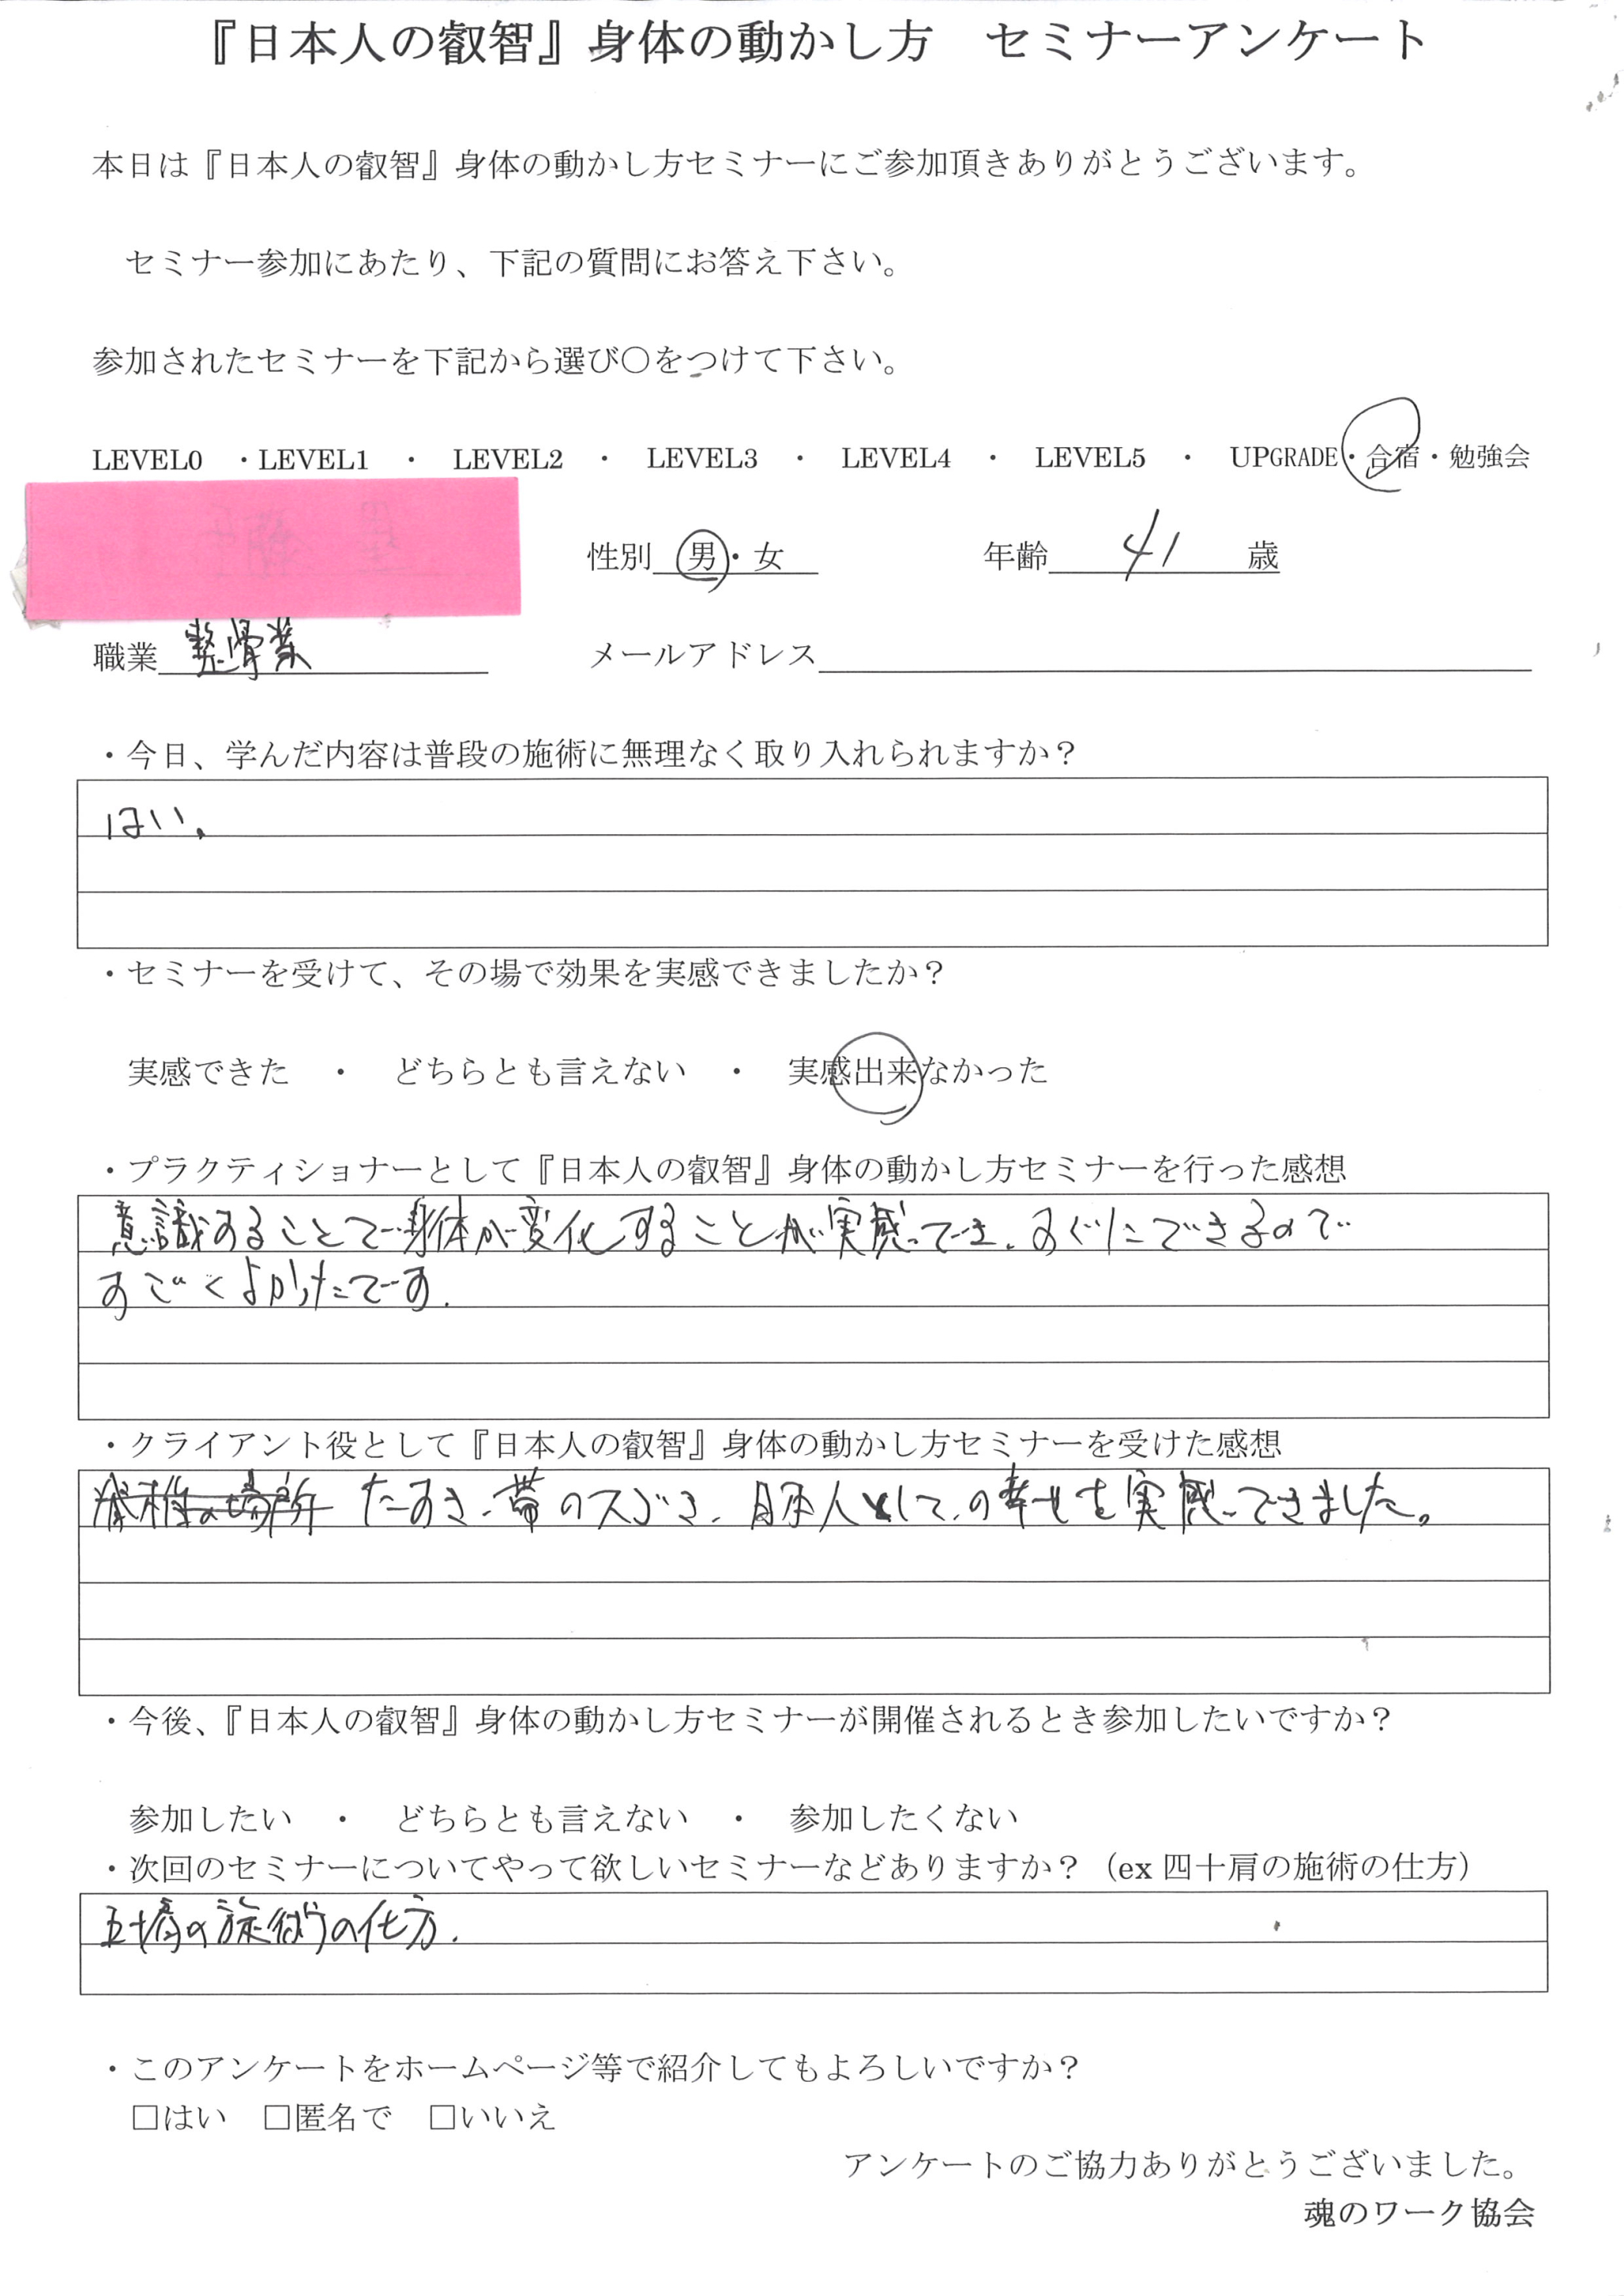 『日本人の叡智』身体の動かし方　セミナーアンケート
本日は『日本人の叡智』身体の動かし方セミナーにご参加頂きありがとうございます。
セミナー参加にあたり、下記の質問にお答え下さい。
参加されたセミナーを下記から選び〇をつけて下さい。
LEVEL0　・LEVEL1　・　LEVEL2　・　LEVEL3　・　LEVEL4　・　LEVEL5　・　UPGRADE・合宿・勉強会
性別 男・女　年齢 41 歳
職業 整骨業　メールアドレス
・今日、学んだ内容は普段の施術に無理なく取り入れられますか？
はい。
・セミナーを受けて、その場で効果を実感できましたか？
実感できた　・　どちらとも言えない　・　実感出来なかった
・プラクティショナーとして『日本人の叡智』身体の動かし方セミナーを行った感想
意識することで身体が変化することが実感でき、すぐにできるので
すごくよかったです.
・クライアント役として『日本人の叡智』身体の動かし方セミナーを受けた感想
たすき、帯のスゴさ、日本人としての幸せを実感できました。
・今後、『日本人の叡智』身体の動かし方セミナーが開催されるとき参加したいですか？
参加したい　・　どちらとも言えない　・　参加したくない
・次回のセミナーについてやって欲しいセミナーなどありますか？（ex 四十肩の施術の仕方）
五十肩の施術の仕方.
・このアンケートをホームページ等で紹介してもよろしいですか？
□はい　□匿名で　□いいえ
アンケートのご協力ありがとうございました。
魂のワーク協会